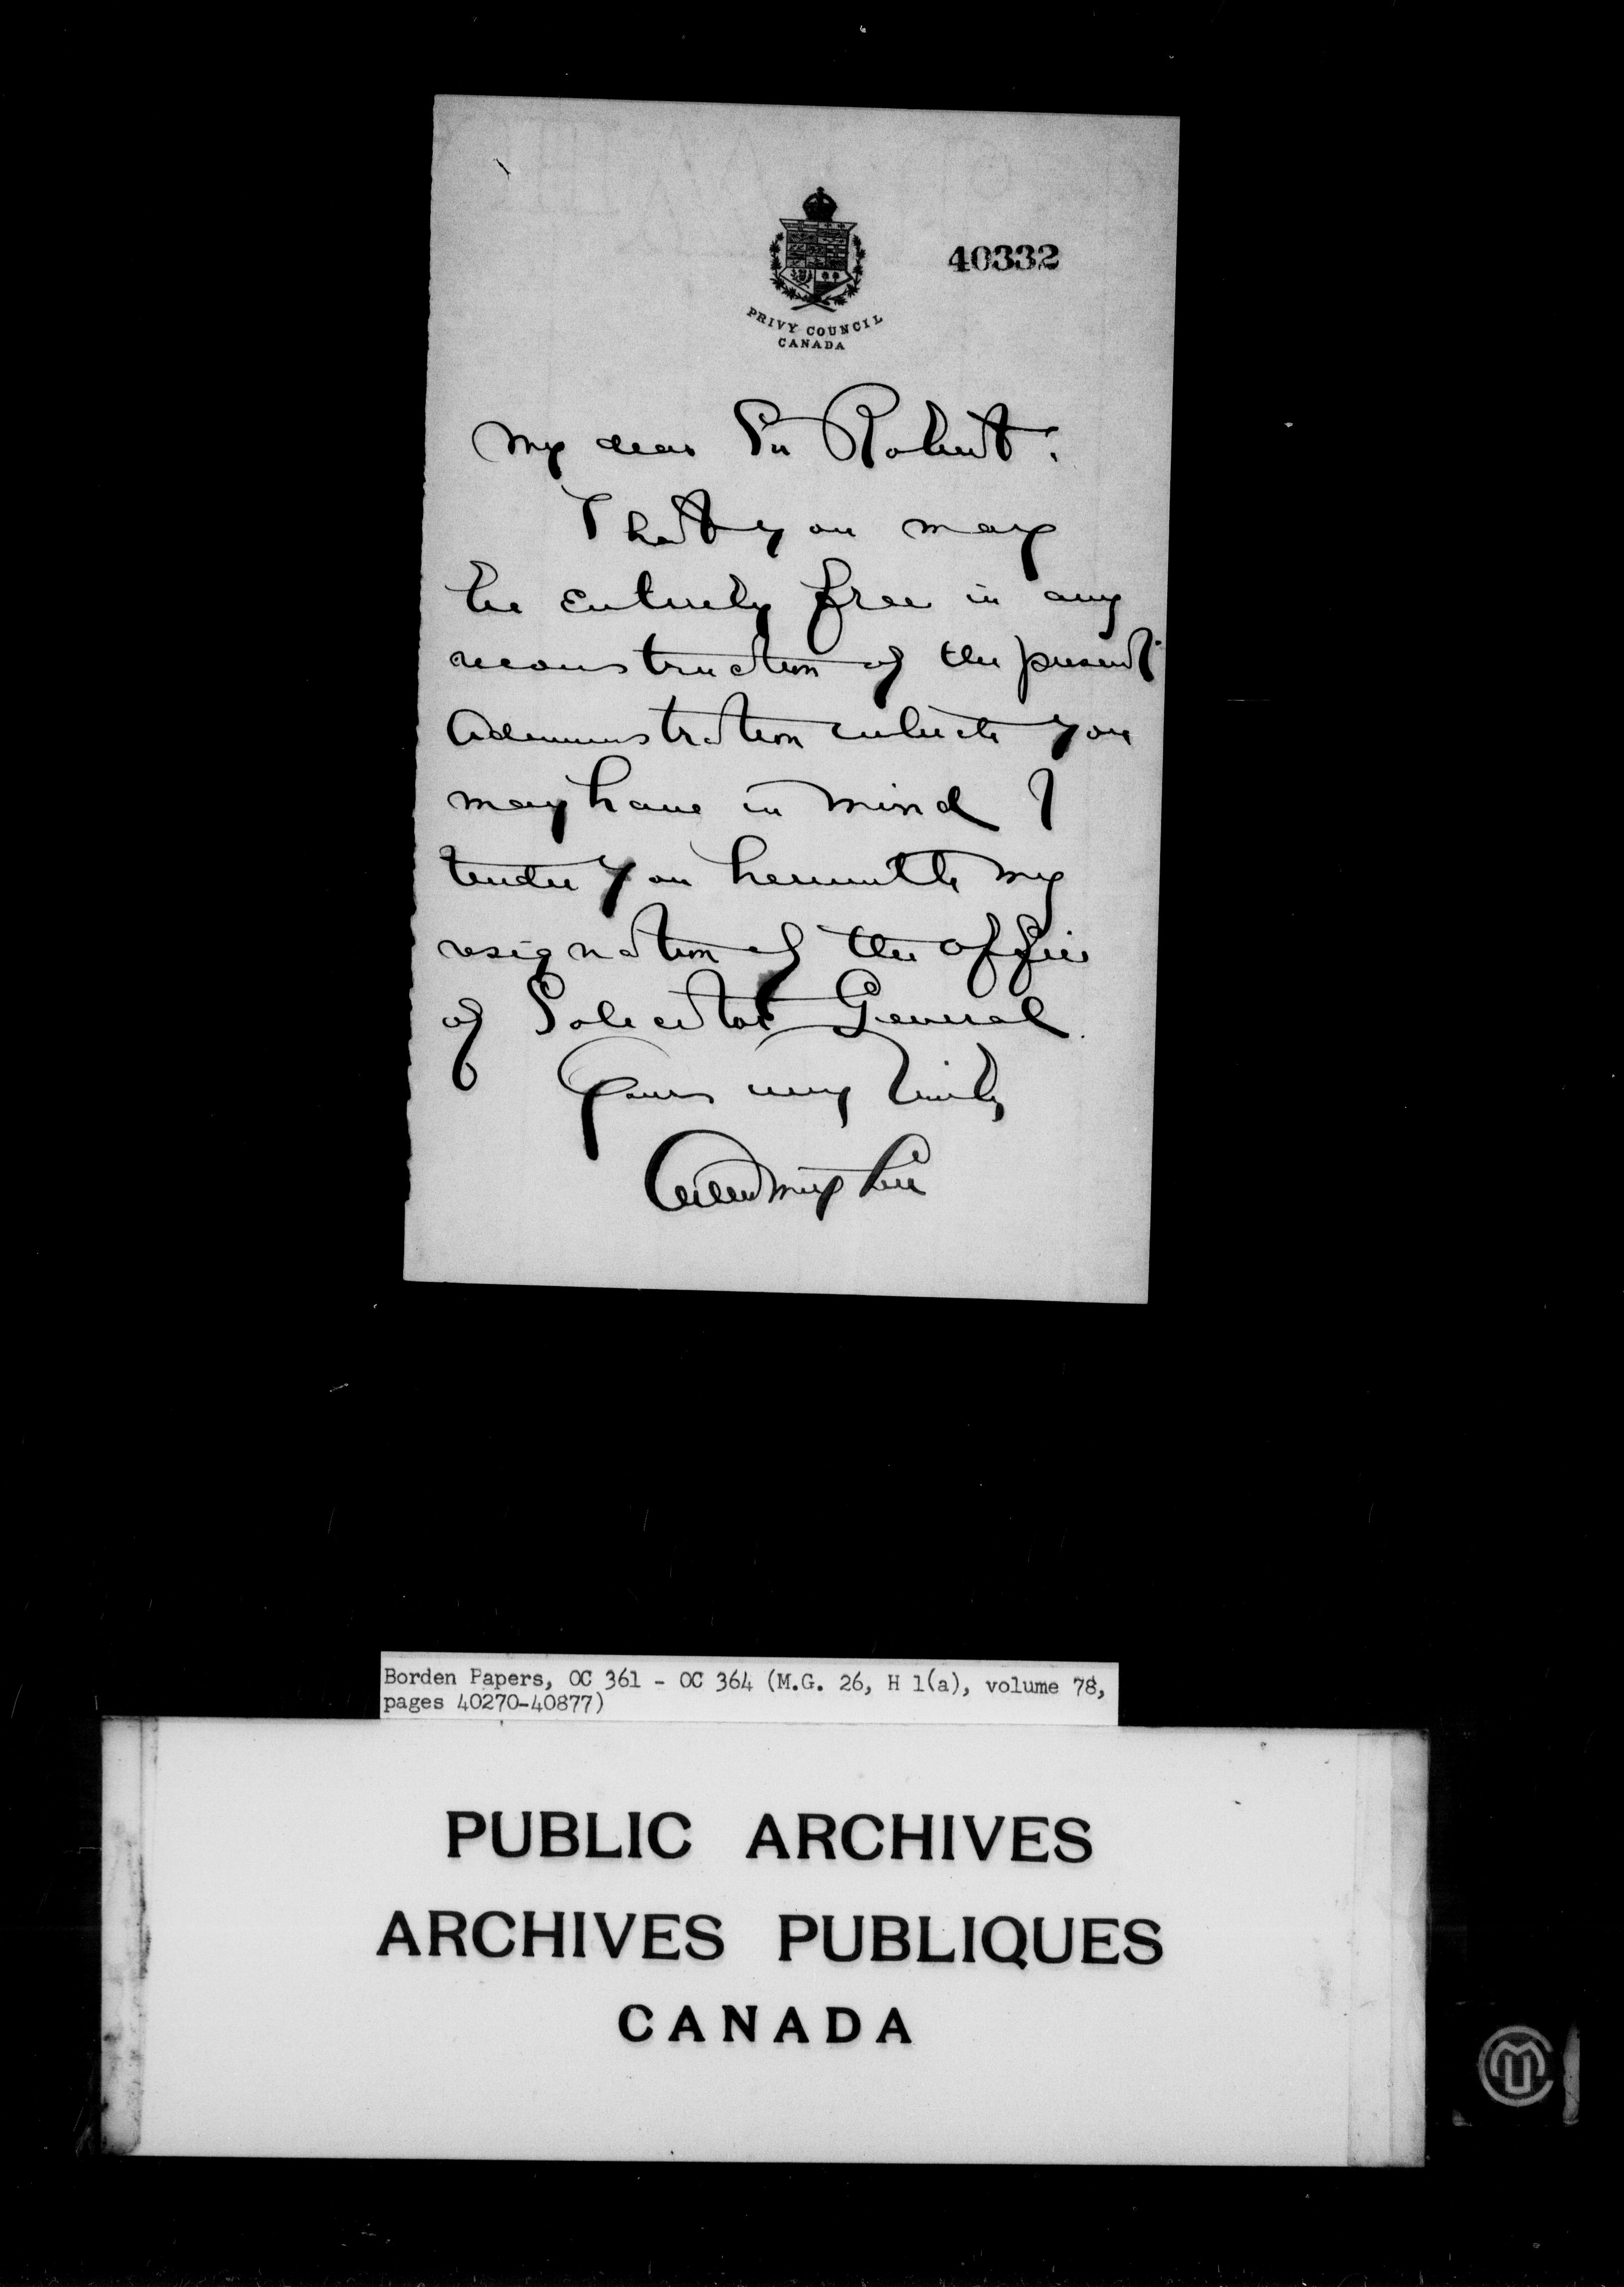 40332
PRIVY COUNCIL
CANADA
My dear Sir Robert:
That you may
be entirely free in any
reconstruction of the present
Administration which you
may have in mind I
tender you herewith my
resignation of the office
of Solicitor General.
Yours very truly
Arthur Meighen
Borden Papers, OC 361 - OC 364 (M.G. 26, H 1(a), volume 78,
pages 40270-40877)
PUBLIC ARCHIVES
ARCHIVES PUBLIQUES
CANADA